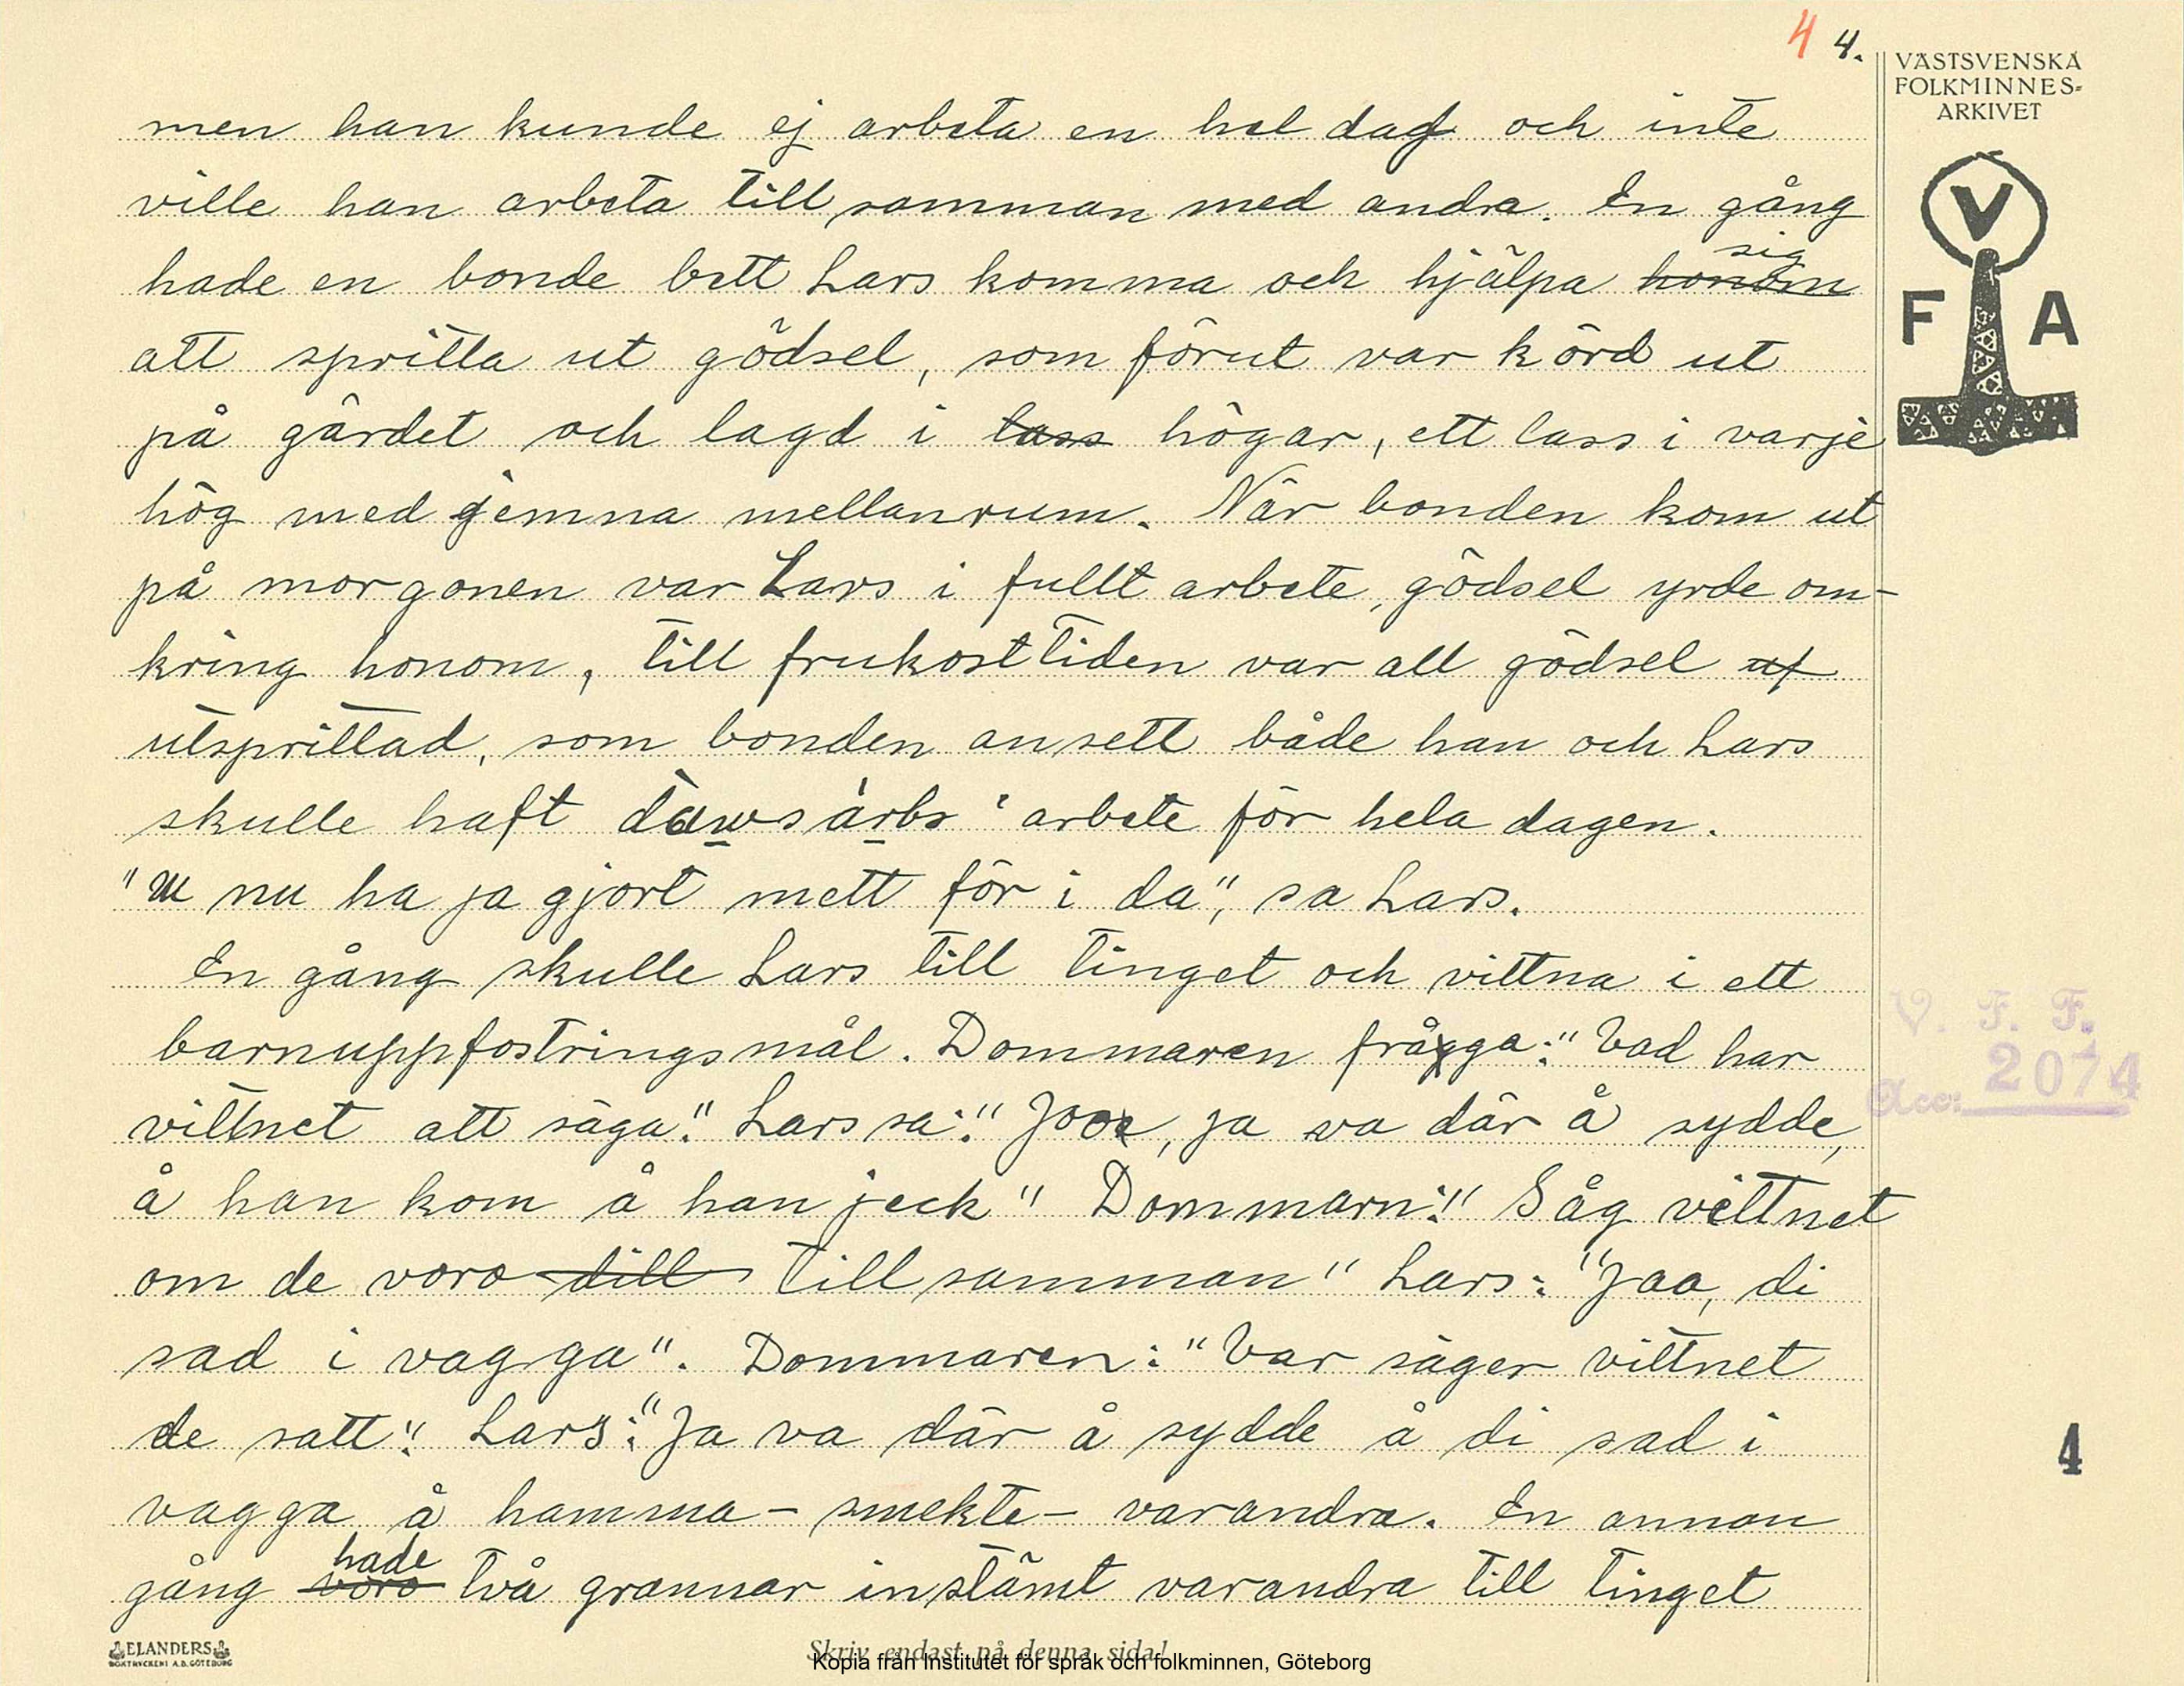 4 4.
VÄSTSVENSKA
FOLKMINNES-
ARKIVET
V
F A
men han kunde ej arbeta en hel dag och inte
ville han arbeta till samman med andra. En gång
hade en bonde bett Lars komma och hjälpa honom sig
att spritta ut gödsel, som förut var körd ut
på gärdet och lagd i lass högar, ett lass i varje
hög med jemna mellanrum. När bonden kom ut
på morgonen var Lars i fullt arbete, gödsel yrde om-
kring honom, till frukosttiden var all gödsel ut
utsprittad, som bonden ansett både han och Lars
skulle haft dàwsàrbs arbete för hela dagen.
" nu ha ja gjort mett för i da", sa Lars.
En gång skulle Lars till tinget och vittna i ett
barnuppfostringsmål. Dommaren frågga: "Vad har
vittnet att säga." Lars sa: "Joo, ja va där å sydde,
å han kom å han jeck" Dommarn: "Såg vittnet
om de voro till till samman" Lars: "Jaa, di
sad i vagga". Dommaren: "Var säger vittnet
de satt" Lars: "Ja va där å sydde å di sad i
vagga å hamma - smekte - varandra. En annan
gång voro hade två grannar instämt varandra till tinget
V. F. F.
Acc: 2074
4
ELANDERS
BOKTRYCKERI A.B. GÖTEBORG
Skriv endast på denna sida!
Kopia från Institutet för språk och folkminnen, Göteborg